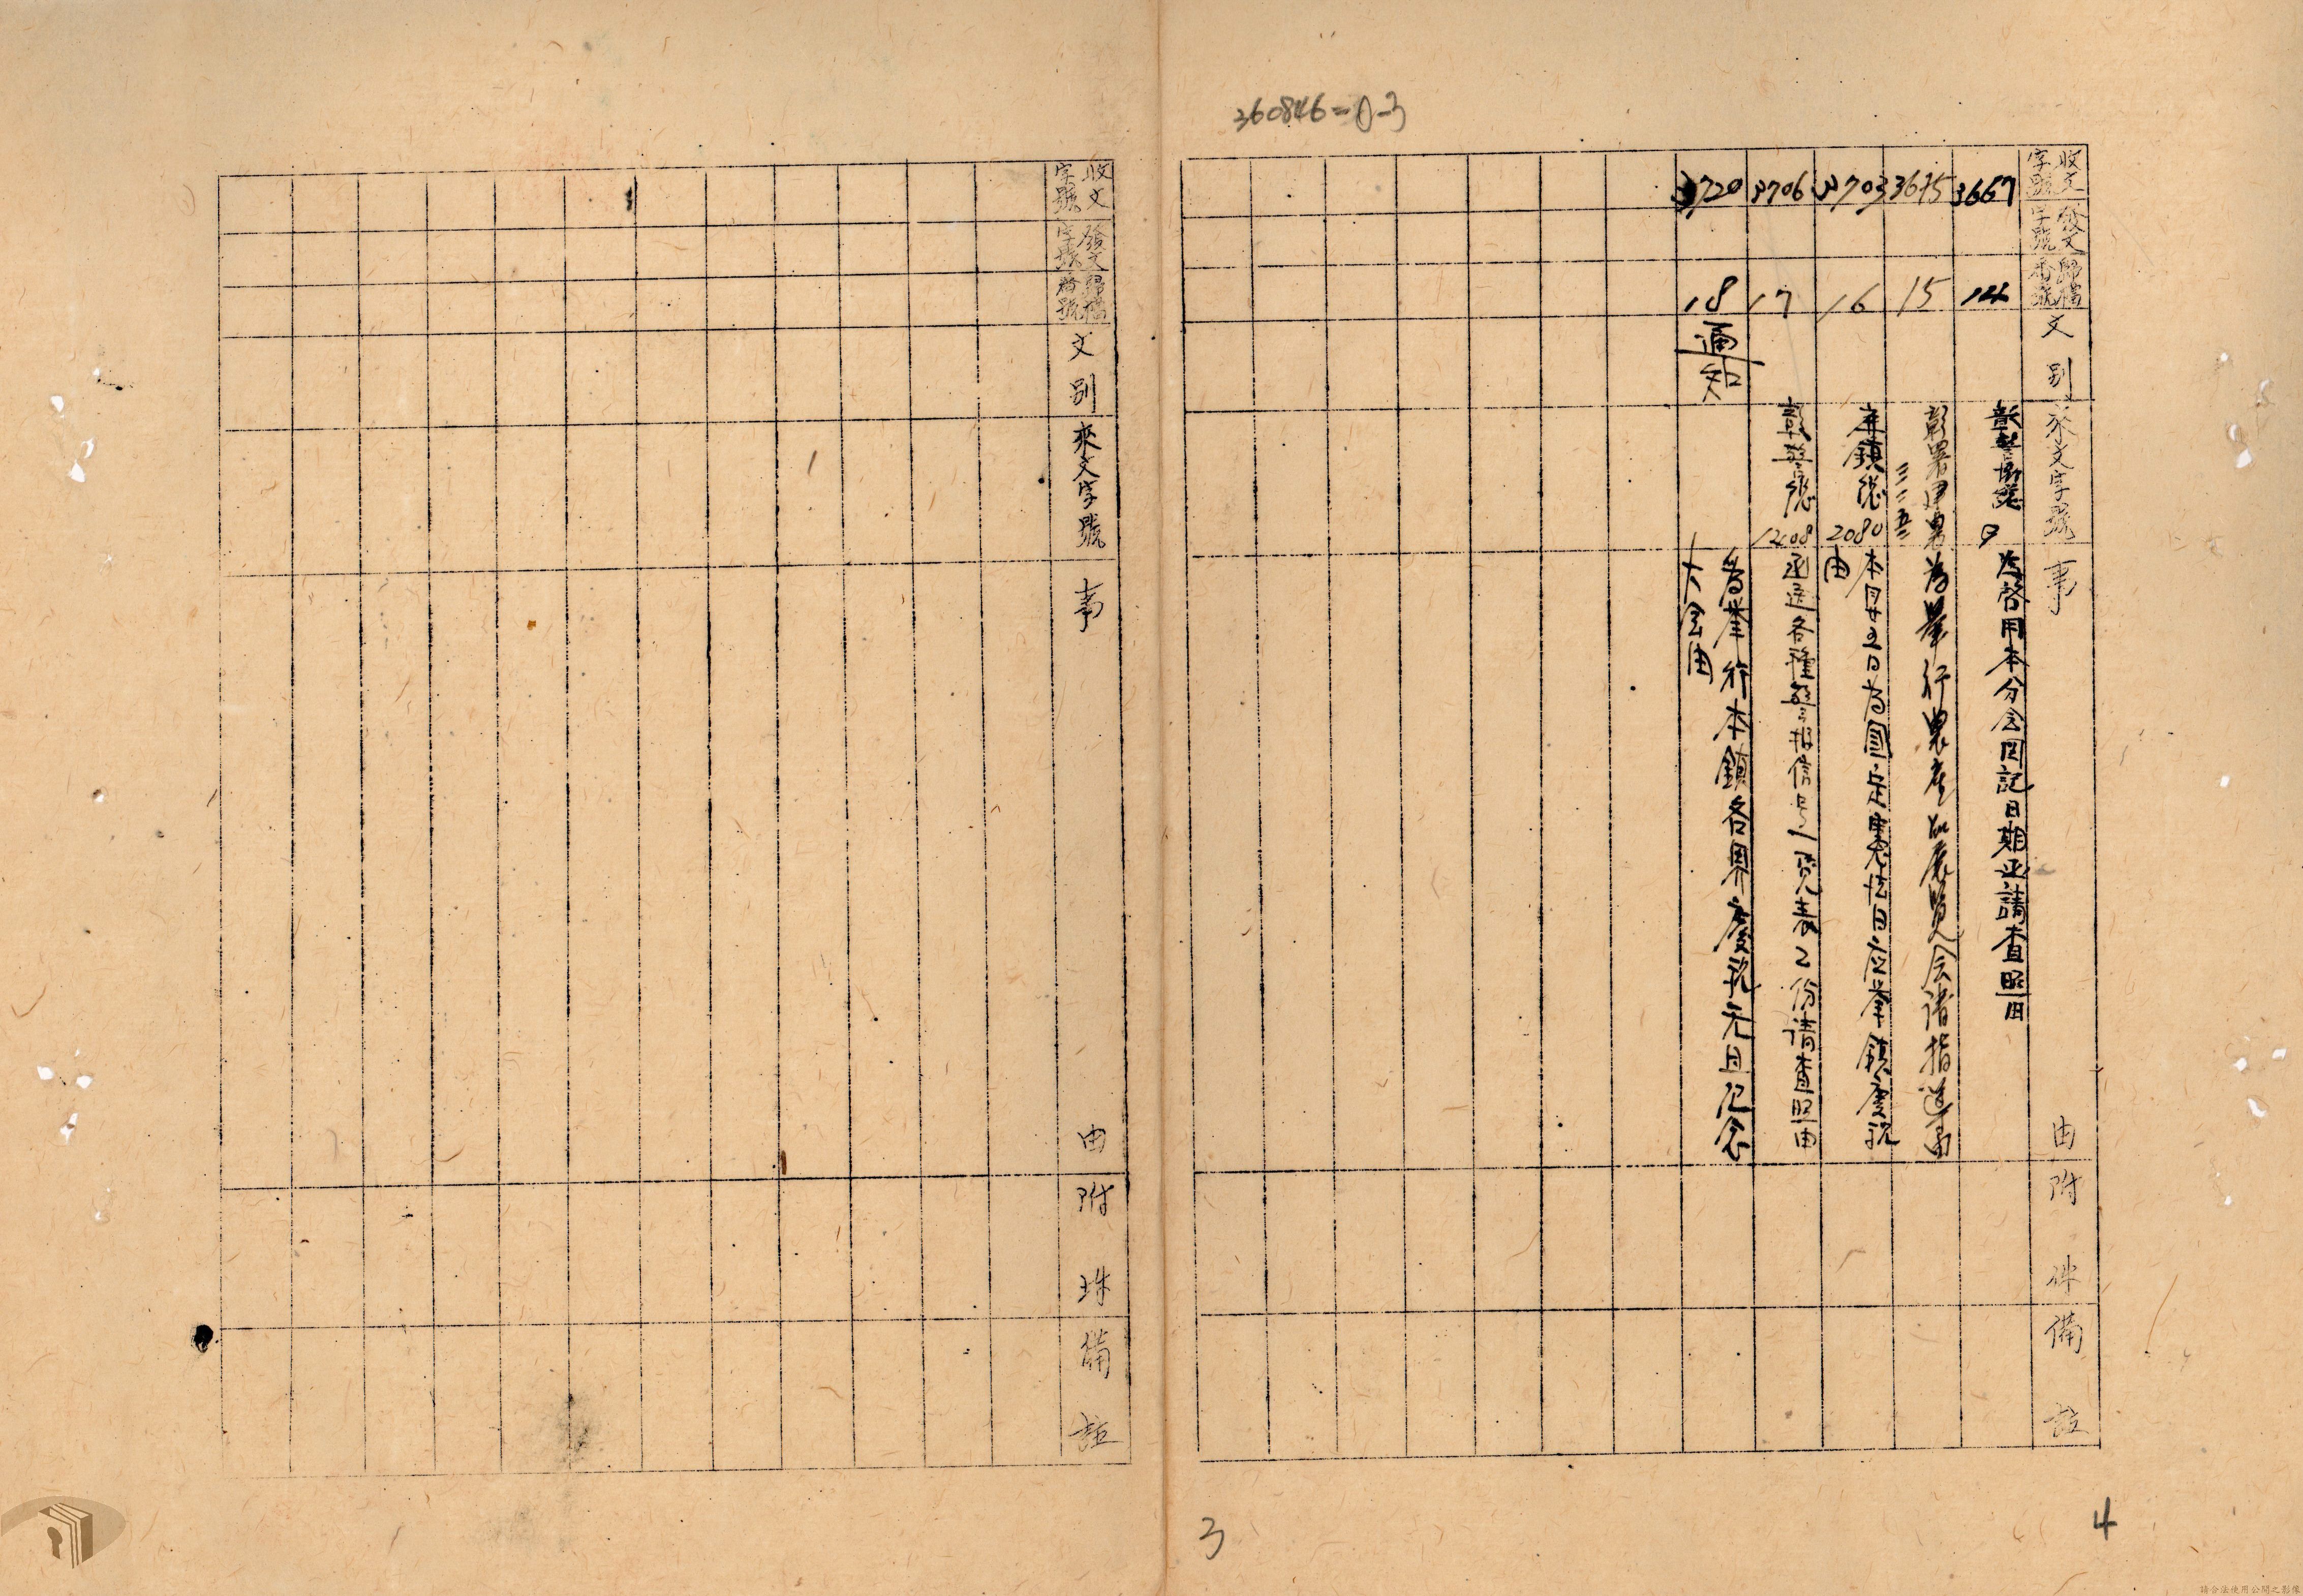 360846=0-3
收文字號 發文字號 歸檔番號 文別 來文字號 事由 附件 備註
3667 14 為啓用本分会図記日期函請查照由
3675 15 彰署 三三一五三 為舉行農産 展覽会請指導由
3703 16 鎮総 2080 本月廿五日為國定 日应举 慶祝
由
3706 17 彰警総 12408 函送各種警报信号一覽表2份請查照由
3720 18 通知 為举行本鎮各界慶祝元旦紀念
大会由
收文字號 發文字號 歸檔番號 文別 來文字號 事由 附 備註
3
4
請合法使用公開之影像